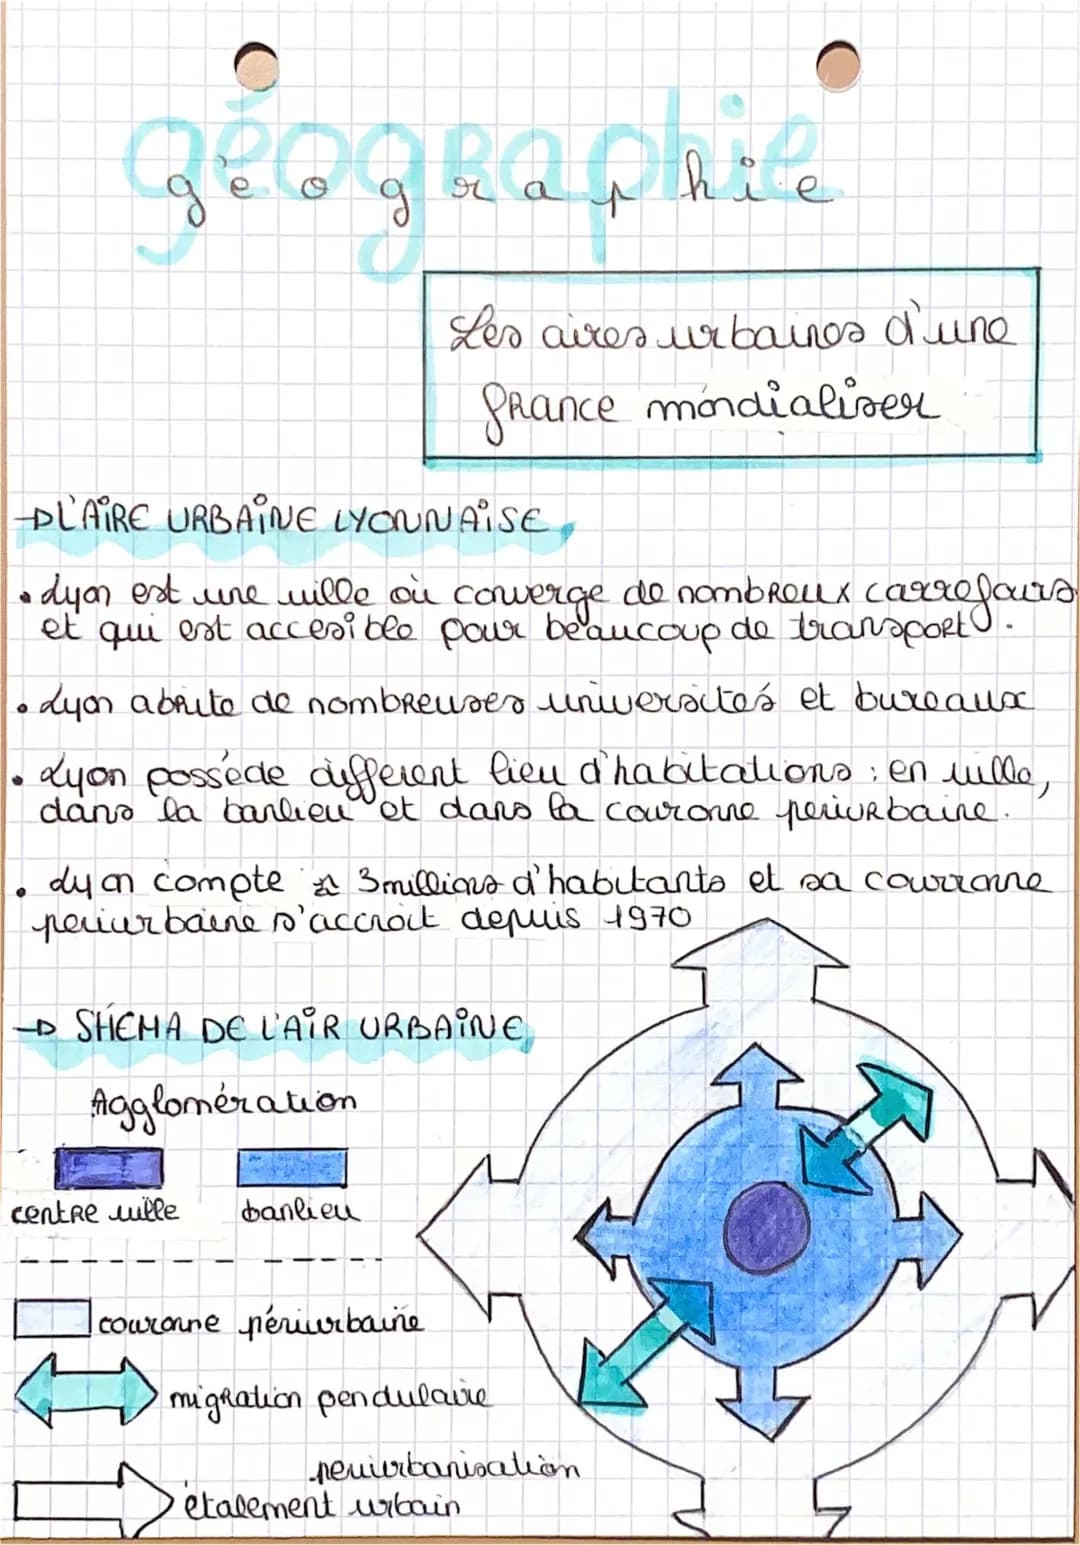 géographie
géographie
Les aires urbaines d'une
france mondialiser
→ L'AIRE URBAINE LYONNAISE
• Lyon est une ville où converge de nombreux carrefours
et qui est accesible pour beaucoup de transport.
• Lyon abrite de nombreuses universités et bureaux
• Lyon possède different lieu d'habitations : en ville,
dans la banlieu et dans la couronne periurbaine.
• Lyon compte ≈ 3 millions d'habitants et sa courronne
periurbaine s'accroit depuis 1970
→ SHEMA DE L'AIR URBAINE
Agglomération
centre ville banlieu
couronne périurbaine
migration pendulaire
periurbanisation
étalement urbain